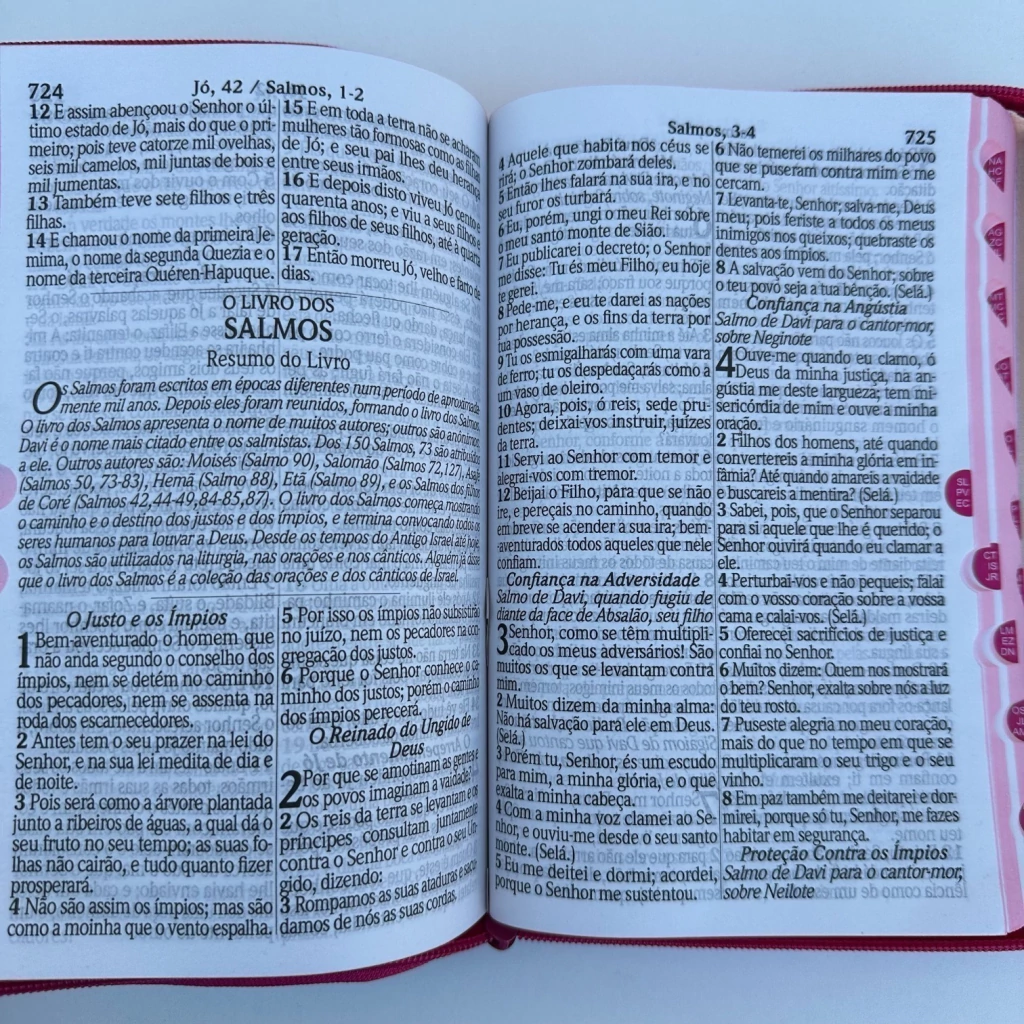 724
Jó, 42 / Salmos, 1-2
12 E assim abençoou o Senhor o úl-
timo estado de Jó, mais do que o pri-
meiro; pois teve catorze mil ovelhas,
seis mil camelos, mil juntas de bois e
mil jumentas.
13 Também teve sete filhos e três
filhas.
14 E chamou o nome da primeira Je-
mima, o nome da segunda Quezia e o
nome da terceira Quéren-Hapuque.
15 E em toda a terra não se acharam
mulheres tão formosas como as filhas
de Jó; e seu pai lhes deu herança
entre seus irmãos.
16 E depois disto viveu Jó cento e
quarenta anos; e viu a seus filhos e
aos filhos de seus filhos, até à quarta
geração.
17 Então morreu Jó, velho e farto de
dias.
O LIVRO DOS
SALMOS
Resumo do Livro
Os Salmos foram escritos em épocas diferentes num período de aproximada-
mente mil anos. Depois eles foram reunidos, formando o livro dos Salmos.
O livro dos Salmos apresenta o nome de muitos autores; outros são anônimos.
Davi é o nome mais citado entre os salmistas. Dos 150 Salmos, 73 são atribuídos
a ele. Outros autores são: Moisés (Salmo 90), Salomão (Salmos 72,127), Asafe
(Salmos 50, 73-83), Hemã (Salmo 88), Etã (Salmo 89), e os Salmos dos filhos
de Coré (Salmos 42,44-49,84-85,87). O livro dos Salmos começa mostrando
o caminho e o destino dos justos e dos ímpios, e termina convocando todos os
seres humanos para louvar a Deus. Desde os tempos do Antigo Israel até hoje,
os Salmos são utilizados na liturgia, nas orações e nos cânticos. Alguém já disse
que o livro dos Salmos é a coleção das orações e dos cânticos de Israel.
O Justo e os Ímpios
1 Bem-aventurado o homem que
não anda segundo o conselho dos
ímpios, nem se detém no caminho
dos pecadores, nem se assenta na
roda dos escarnecedores.
2 Antes tem o seu prazer na lei do
Senhor, e na sua lei medita de dia e
de noite.
3 Pois será como a árvore plantada
junto a ribeiros de águas, a qual dá o
seu fruto no seu tempo; as suas fo-
lhas não cairão, e tudo quanto fizer
prosperará.
4 Não são assim os ímpios; mas são
como a moinha que o vento espalha.
5 Por isso os ímpios não subsistirão
no juízo, nem os pecadores na con-
gregação dos justos.
6 Porque o Senhor conhece o ca-
minho dos justos; porém o caminho
dos ímpios perecerá.
O Reinado do Ungido de
Deus
2 Por que se amotinam as gentes e
os povos imaginam a vaidade?
2 Os reis da terra se levantam e os
príncipes consultam juntamente
contra o Senhor e contra o seu Un-
gido, dizendo:
3 Rompamos as suas ataduras e sacu-
damos de nós as suas cordas.
Salmos, 3-4
725
4 Aquele que habita nos céus se
rirá; o Senhor zombará deles.
5 Então lhes falará na sua ira, e no
seu furor os turbará.
6 Eu, porém, ungi o meu Rei sobre
o meu santo monte de Sião.
7 Eu publicarei o decreto; o Senhor
me disse: Tu és meu Filho, eu hoje
te gerei.
8 Pede-me, e eu te darei as nações
por herança, e os fins da terra por
tua possessão.
9 Tu os esmigalharás com uma vara
de ferro; tu os despedaçarás como a
um vaso de oleiro.
10 Agora, pois, ó reis, sede pru-
dentes; deixai-vos instruir, juízes
da terra.
11 Servi ao Senhor com temor e
alegrai-vos com tremor.
12 Beijai o Filho, para que se não
ire, e pereçais no caminho, quando
em breve se acender a sua ira; bem-
aventurados todos aqueles que nele
confiam.
Confiança na Adversidade
Salmo de Davi, quando fugiu de
diante da face de Absalão, seu filho
3 Senhor, como se têm multipli-
cado os meus adversários! São
muitos os que se levantam contra
mim.
2 Muitos dizem da minha alma:
Não há salvação para ele em Deus.
(Selá.)
3 Porém tu, Senhor, és um escudo
para mim, a minha glória, e o que
exalta a minha cabeça.
4 Com a minha voz clamei ao Se-
nhor, e ouviu-me desde o seu santo
monte. (Selá.)
5 Eu me deitei e dormi; acordei,
porque o Senhor me sustentou.
6 Não temerei os milhares do povo
que se puseram contra mim e me
cercam.
7 Levanta-te, Senhor; salva-me, Deus
meu; pois feriste a todos os meus
inimigos nos queixos; quebraste os
dentes aos ímpios.
8 A salvação vem do Senhor; sobre
o teu povo seja a tua bênção. (Selá.)
Confiança na Angústia
Salmo de Davi para o cantor-mor,
sobre Neginote
4 Ouve-me quando eu clamo, ó
Deus da minha justiça, na an-
gústia me deste largueza; tem mi-
sericórdia de mim e ouve a minha
oração.
2 Filhos dos homens, até quando
convertereis a minha glória em in-
fâmia? Até quando amareis a vaidade
e buscareis a mentira? (Selá.)
3 Sabei, pois, que o Senhor separou
para si aquele que lhe é querido; o
Senhor ouvirá quando eu clamar a
ele.
4 Perturbai-vos e não pequeis; falai
com o vosso coração sobre a vossa
cama e calai-vos. (Selá.)
5 Oferecei sacrifícios de justiça e
confiai no Senhor.
6 Muitos dizem: Quem nos mostrará
o bem? Senhor, exalta sobre nós a luz
do teu rosto.
7 Puseste alegria no meu coração,
mais do que no tempo em que se
multiplicaram o seu trigo e o seu
vinho.
8 Em paz também me deitarei e dor-
mirei, porque só tu, Senhor, me fazes
habitar em segurança.
Proteção Contra os Ímpios
Salmo de Davi para o cantor-mor,
sobre Neilote
SL
PV
EC
CT
IS
JR
LM
EZ
DN